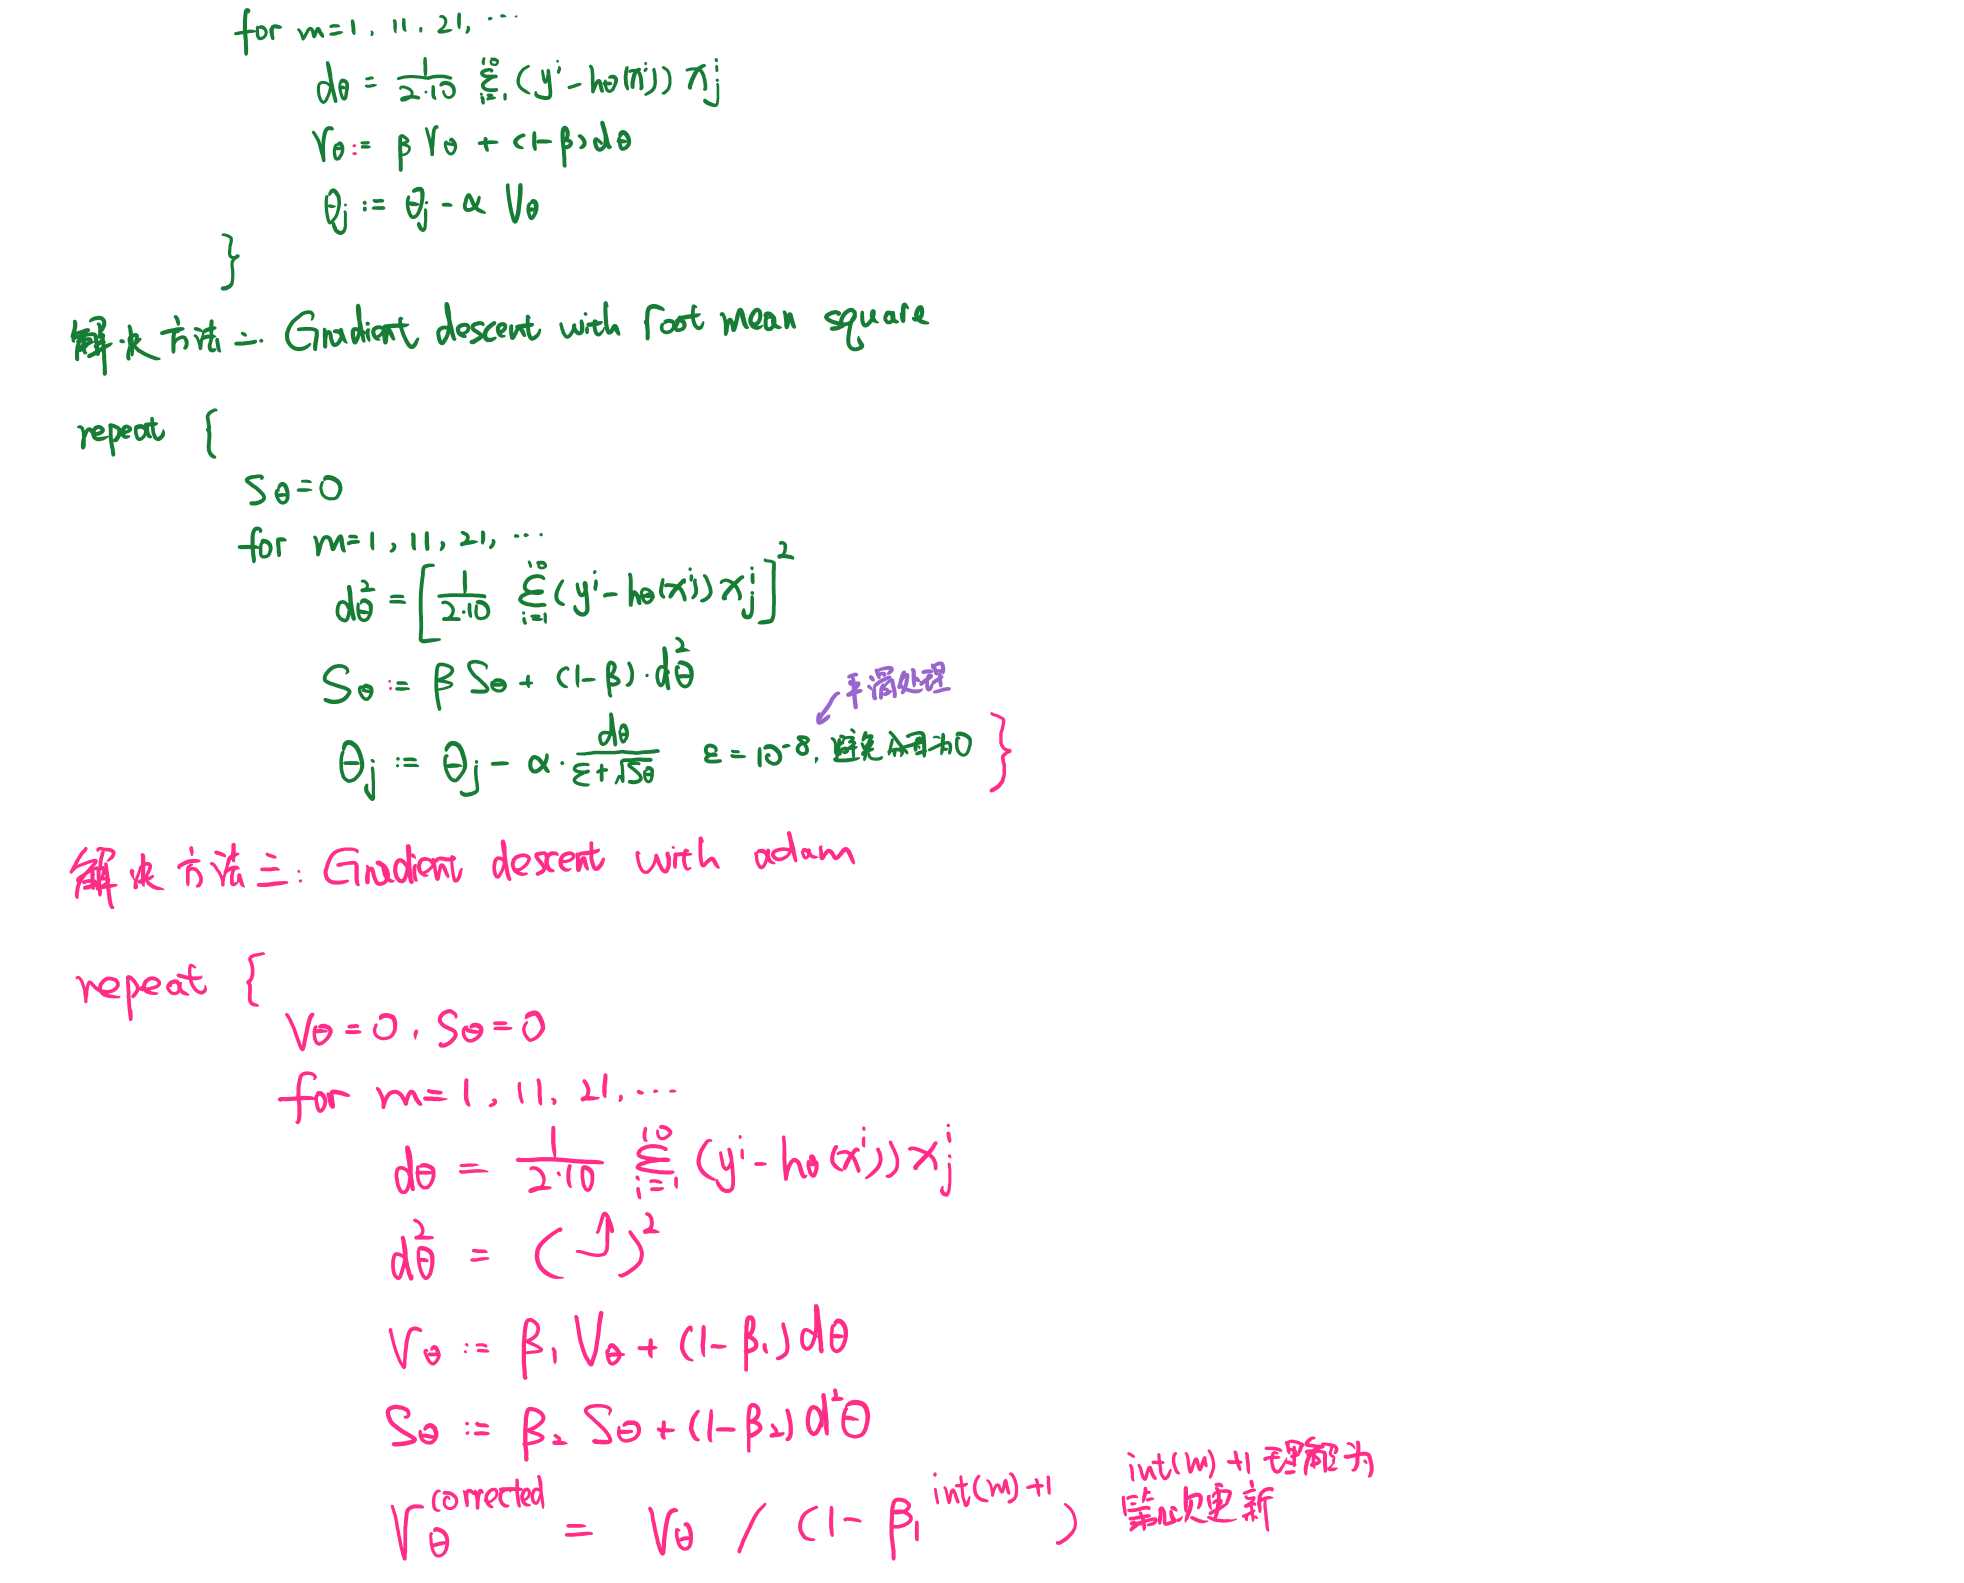 for m=1, 11, 21, ...
dθ = 1/(2·10) Σ_{i=1}^{10} (y^i - hθ(x^i)) x_j^i
Vθ := β Vθ + (1-β) dθ
θj := θj - α Vθ
}
解决方法二: Gradient descent with root mean square
repeat {
Sθ=0
for m=1, 11, 21, ...
d²θ = [1/(2·10) Σ_{i=1}^{10} (y^i - hθ(x^i)) x_j^i]²
Sθ := β Sθ + (1-β)·d²θ
平滑处理
θj := θj - α· dθ/(ε+√Sθ) ε = 10^-8, 避免分母为0 }
解决方法三: Gradient descent with adam
repeat {
Vθ=0, Sθ=0
for m=1, 11, 21, ...
dθ = 1/(2·10) Σ_{i=1}^{10} (y^i - hθ(x^i)) x_j^i
d²θ = ( ⤴ )²
Vθ := β₁ Vθ + (1-β₁) dθ
Sθ := β₂ Sθ + (1-β₂) d²θ
Vθ^corrected = Vθ / (1- β₁^{int(m)+1})
int(m)+1 理解为
第几次更新